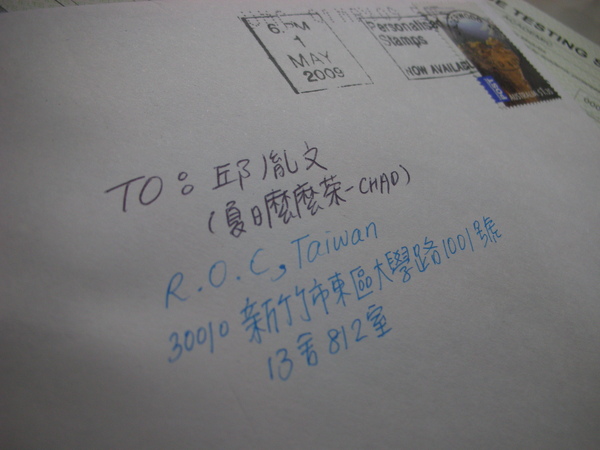 6 PM
1
MAY
2009
Personalised
Stamps
NOW AVAILABLE
E TESTING S
TO: 邱胤文
(夏日麼麼茶-CHAD)
R.O.C, Taiwan
30010 新竹市東區大學路1001號
13舍812室